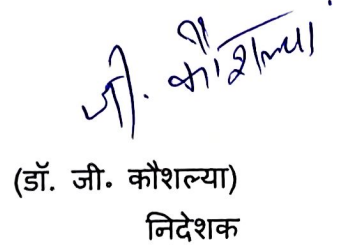 जी. कौशल्या
(डॉ. जी. कौशल्या)
निदेशक